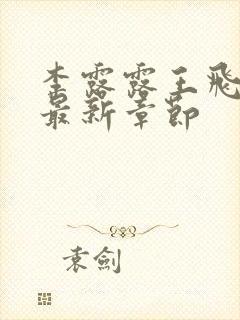 李露露王飛
最新章節
袁劍